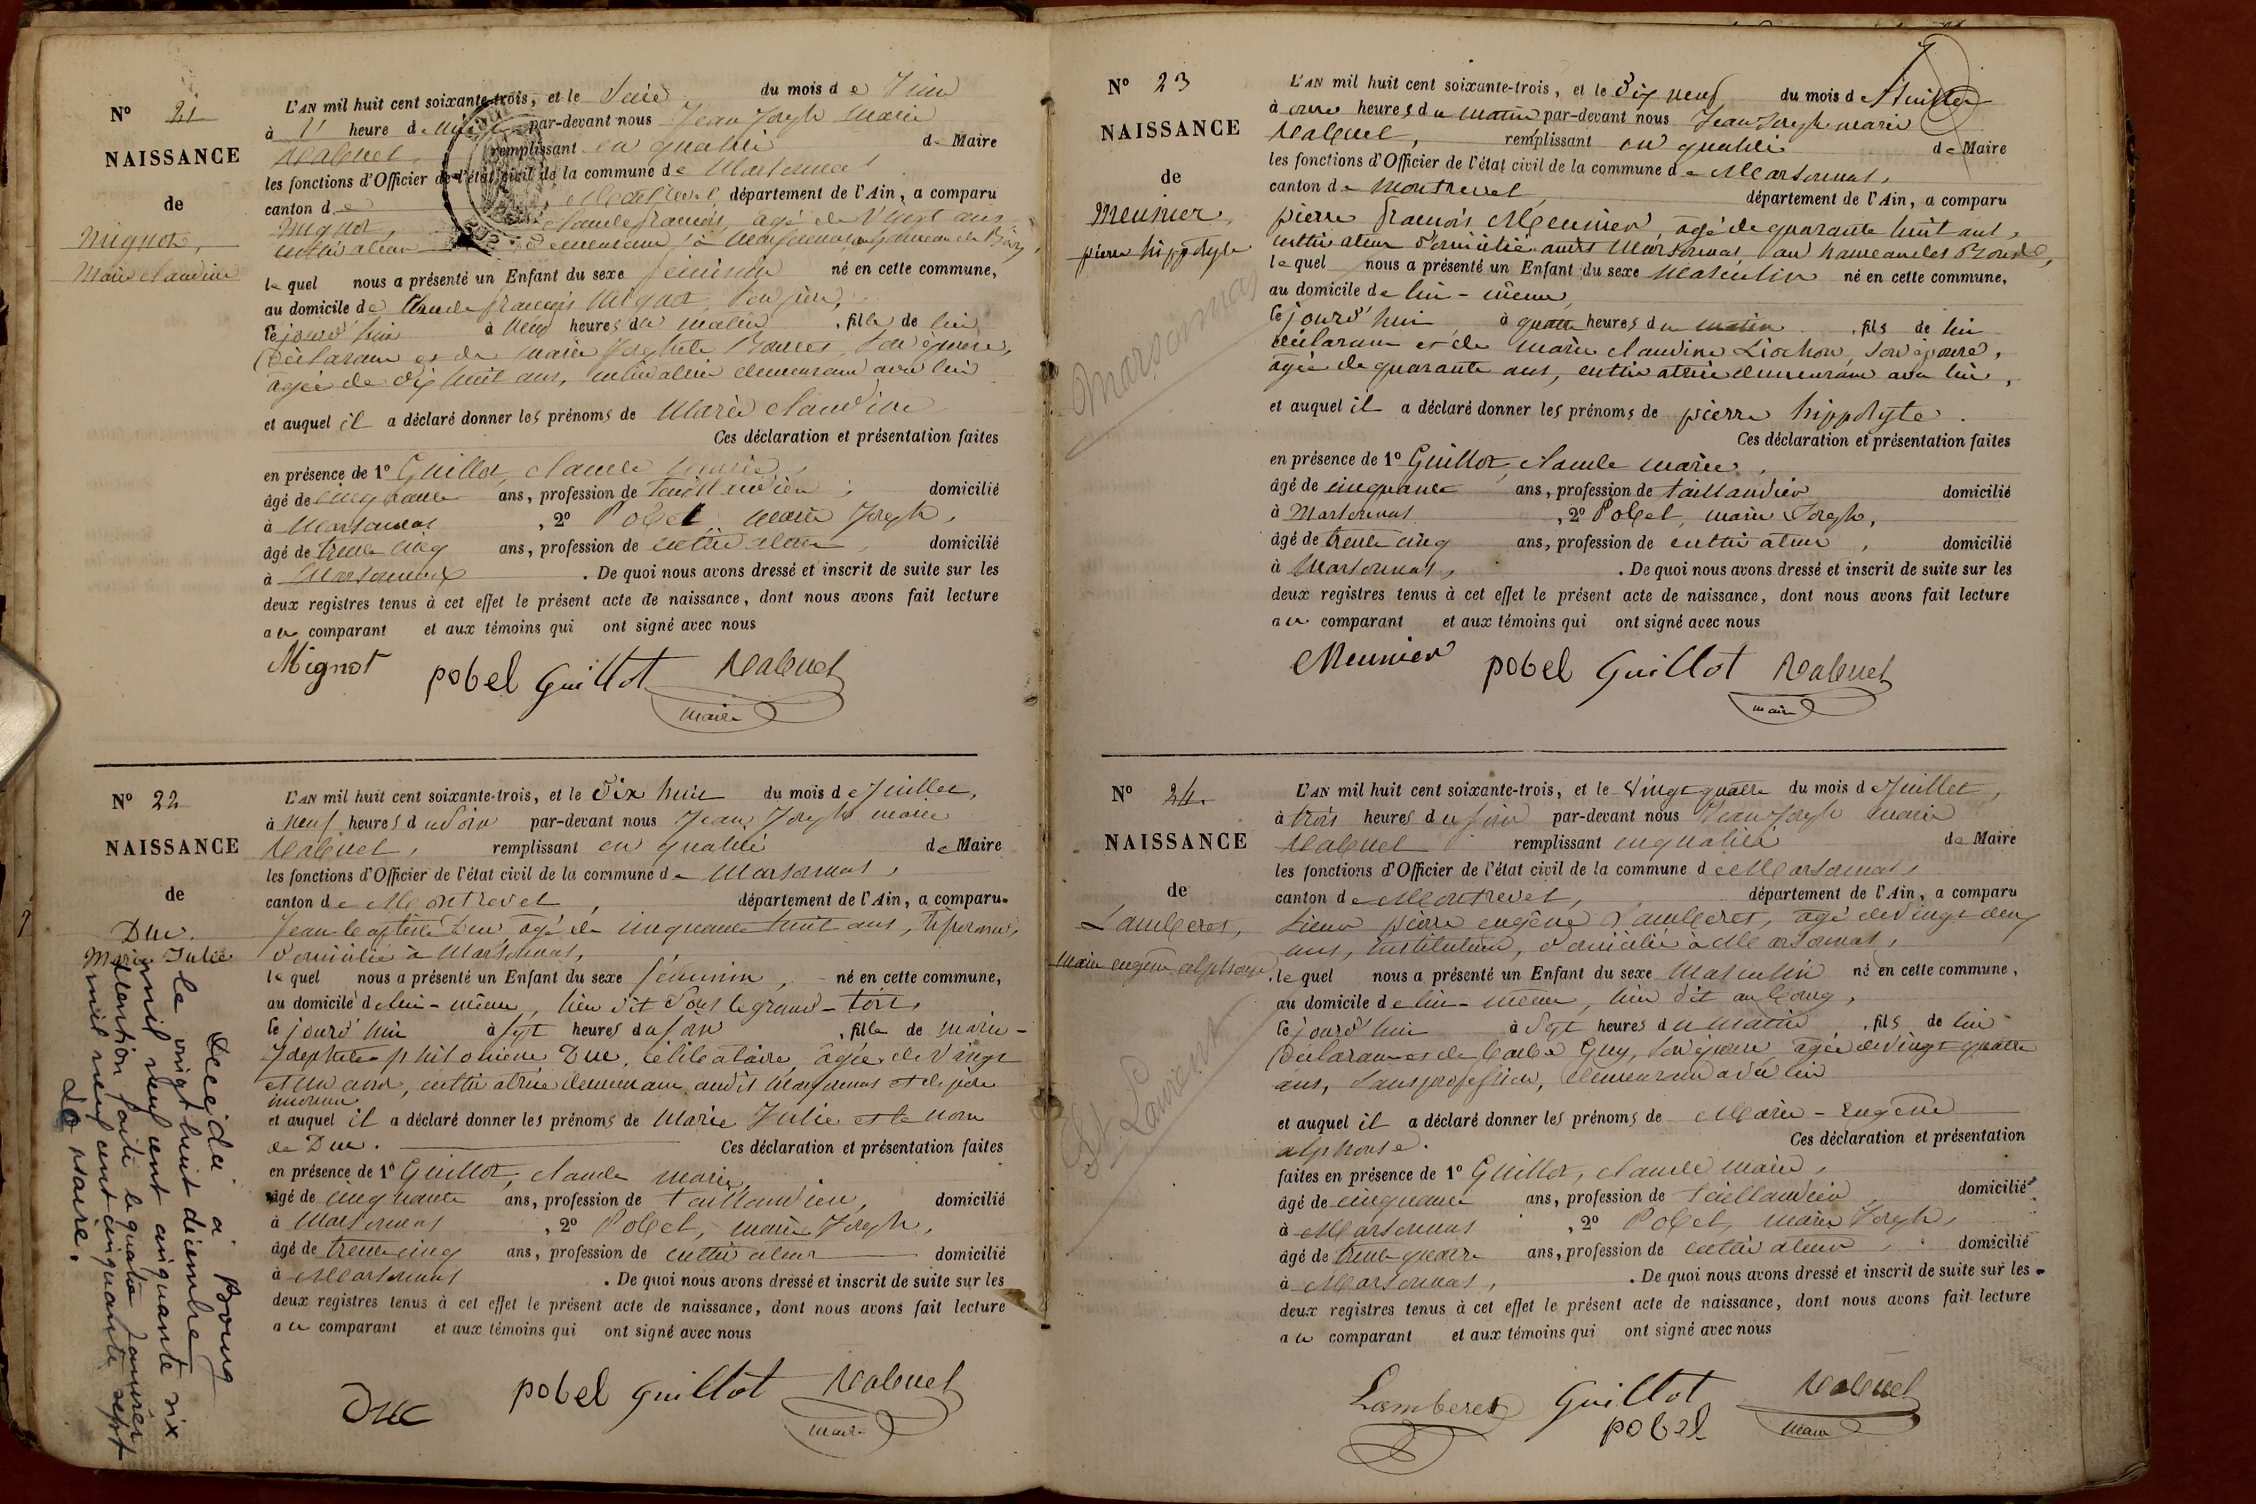 N° 21
NAISSANCE
de
Mignot,
Marie claudine
L'AN mil huit cent soixante-trois, et le Seize du mois de Juin
à heure de par-devant nous Jean Joseph Marie
remplissant en qualité de Maire
les fonctions d'Officier de l'état civil de la commune de Marsonnas
canton de Montrevel, département de l'Ain, a comparu
mignot, claude françois, agé de Vingt ans
cultivateur demeurant à Marsonnas hameau de
lequel nous a présenté un Enfant du sexe féminin né en cette commune,
au domicile de Claude françois Mignot, son père,
cejourd'hui à heures du matin, fille de lui
Déclarant et de marie Josephte son épouse,
agée de dix huit ans, cultivatrice demeurant avec lui
et auquel il a déclaré donner les prénoms de Marie Claudine
Ces déclaration et présentation faites
en présence de 1° Guillot, claude marie,
âgé de cinquante ans, profession de taillandier, domicilié
à Marsonnas, 2° Pobel, marie Joseph,
âgé de trente cinq ans, profession de cultivateur, domicilié
à Marsonnas. De quoi nous avons dressé et inscrit de suite sur les
deux registres tenus à cet effet le présent acte de naissance, dont nous avons fait lecture
au comparant et aux témoins qui ont signé avec nous
Mignot pobel Guillot
maire
N° 22
NAISSANCE
de
Duc
Marie Julie
L'AN mil huit cent soixante-trois, et le Dix huit du mois de Juillet,
à neuf heures du soir par-devant nous Jean Joseph marie
remplissant en qualité de Maire
les fonctions d'Officier de l'état civil de la commune de Marsonnas,
canton de Montrevel, département de l'Ain, a comparu
Jean baptiste Duc agé de cinquante huit ans,
domicilié à Marsonnas,
lequel nous a présenté un Enfant du sexe féminin, né en cette commune,
au domicile de lui-même, lieu dit Sous le grand-
cejourd'hui à sept heures du soir, fille de marie-
Josephte philomène Duc, célibataire, agée de Vingt
et un ans, cultivatrice demeurant audit Marsonnas et de père
inconnu
et auquel il a déclaré donner les prénoms de Marie Julie et le nom
de Duc. Ces déclaration et présentation faites
en présence de 1° Guillot, claude marie,
âgé de cinquante ans, profession de taillandier, domicilié
à Marsonnas, 2° Pobel, marie Joseph,
âgé de trente cinq ans, profession de cultivateur domicilié
à Marsonnas. De quoi nous avons dressé et inscrit de suite sur les
deux registres tenus à cet effet le présent acte de naissance, dont nous avons fait lecture
au comparant et aux témoins qui ont signé avec nous
Duc pobel Guillot
maire
Décédée à Bourg
le vingt huit décembre
mil neuf cent cinquante six
Mention faite le quatre Janvier
mil neuf cent cinquante sept
Le Maire.
N° 23
NAISSANCE
de
Meunier,
pierre hippolyte
Marsonnas
L'AN mil huit cent soixante-trois, et le Dix neuf du mois de Juillet
à onze heures du matin par-devant nous Jean Joseph marie
remplissant en qualité de Maire
les fonctions d'Officier de l'état civil de la commune de Marsonnas,
canton de Montrevel, département de l'Ain, a comparu
pierre françois Meunier, agé de quarante huit ans,
cultivateur domicilié audit Marsonnas, au hameau des
lequel nous a présenté un Enfant du sexe masculin né en cette commune,
au domicile de lui-même,
cejourd'hui à quatre heures du matin, fils de lui
déclarant et de marie claudine Liochon, son épouse,
agée de quarante ans, cultivatrice demeurant avec lui,
et auquel il a déclaré donner les prénoms de pierre hippolyte.
Ces déclaration et présentation faites
en présence de 1° Guillot, claude marie,
âgé de cinquante ans, profession de taillandier domicilié
à Marsonnas, 2° Pobel, marie Joseph,
âgé de trente cinq ans, profession de cultivateur, domicilié
à Marsonnas,. De quoi nous avons dressé et inscrit de suite sur les
deux registres tenus à cet effet le présent acte de naissance, dont nous avons fait lecture
au comparant et aux témoins qui ont signé avec nous
Meunier pobel Guillot
maire
N° 24
NAISSANCE
de
Lamberet,
marie eugène alphonse
St Laurent
L'AN mil huit cent soixante-trois, et le Vingt quatre du mois de Juillet,
à trois heures du soir par-devant nous Jean Joseph marie
remplissant en qualité de Maire
les fonctions d'Officier de l'état civil de la commune de Marsonnas,
canton de Montrevel, département de l'Ain, a comparu
Sieur pierre eugène Lamberet, agé de Vingt deux
ans, instituteur, domicilié à Marsonnas,
lequel nous a présenté un Enfant du sexe Masculin né en cette commune,
au domicile de lui-même, lieu dit au bourg,
cejourd'hui à Sept heures du matin, fils de lui
Déclarant et de Guy, son épouse, agée de vingt quatre
ans, Sans profession, demeurant avec lui
et auquel il a déclaré donner les prénoms de Marie-Eugène
alphonse. Ces déclaration et présentation
faites en présence de 1° Guillot, claude marie,
âgé de cinquante ans, profession de Taillandier, domicilié
à Marsonnas, 2° Pobel, marie Joseph,
âgé de trente quatre ans, profession de cultivateur, domicilié
à Marsonnas,. De quoi nous avons dressé et inscrit de suite sur les
deux registres tenus à cet effet le présent acte de naissance, dont nous avons fait lecture
au comparant et aux témoins qui ont signé avec nous
Lamberet Guillot
pobel maire